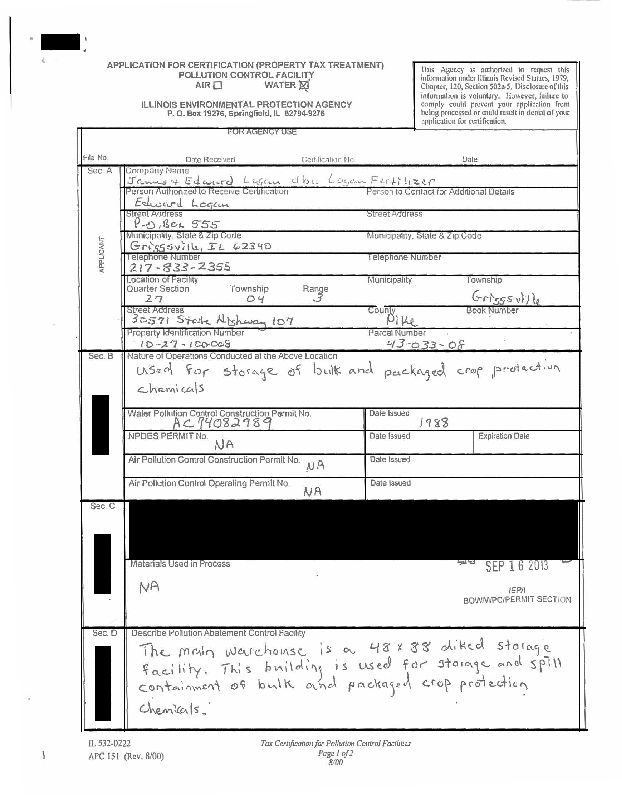 APPLICATION FOR CERTIFICATION (PROPERTY TAX TREATMENT)
POLLUTION CONTROL FACILITY
AIR ☐ WATER ☒
ILLINOIS ENVIRONMENTAL PROTECTION AGENCY
P. O. Box 19276, Springfield, IL 62794-9276
This Agency is authorized to request this
information under Illinois Revised Statues, 1979,
Chapter, 120, Section 502a-5. Disclosure of this
information is voluntary. However, failure to
comply could prevent your application from
being processed or could result in denial of your
application for certification.
FOR AGENCY USE
File No. Date Received Certification No. Date
Sec. A Company Name
James & Edward Logan dba Logan Fertilizer
Person Authorized to Receive Certification Person to Contact for Additional Details
Edward Logan
Street Address Street Address
P.O. Box 555
Municipality, State & Zip Code Municipality, State & Zip Code
Griggsville, IL 62340
Telephone Number Telephone Number
217-833-2355
APPLICANT
Location of Facility Municipality Township
Quarter Section Township Range
27 04 3 Griggsville
Street Address County Book Number
30571 State Highway 107 Pike
Property Identification Number Parcel Number
10-27-100008 43-033-08
Sec. B Nature of Operations Conducted at the Above Location
used for storage of bulk and packaged crop protection
chemicals
Water Pollution Control Construction Permit No. Date Issued
AC94082989 1988
NPDES PERMIT No. Date Issued Expiration Date
NA
Air Pollution Control Construction Permit No. Date Issued
NA
Air Pollution Control Operating Permit No. Date Issued
NA
Sec. C
Materials Used in Process
SEP 16 2013
NA
IEPA
BOW/WPC/PERMIT SECTION
Sec. D Describe Pollution Abatement Control Facility
The main warehouse is a 48 x 88 diked storage
facility. This building is used for storage and spill
containment of bulk and packaged crop protection
chemicals.
IL 532-0222 Tax Certification for Pollution Control Facilities
APC 151 (Rev. 8/00) Page 1 of 2
8/00